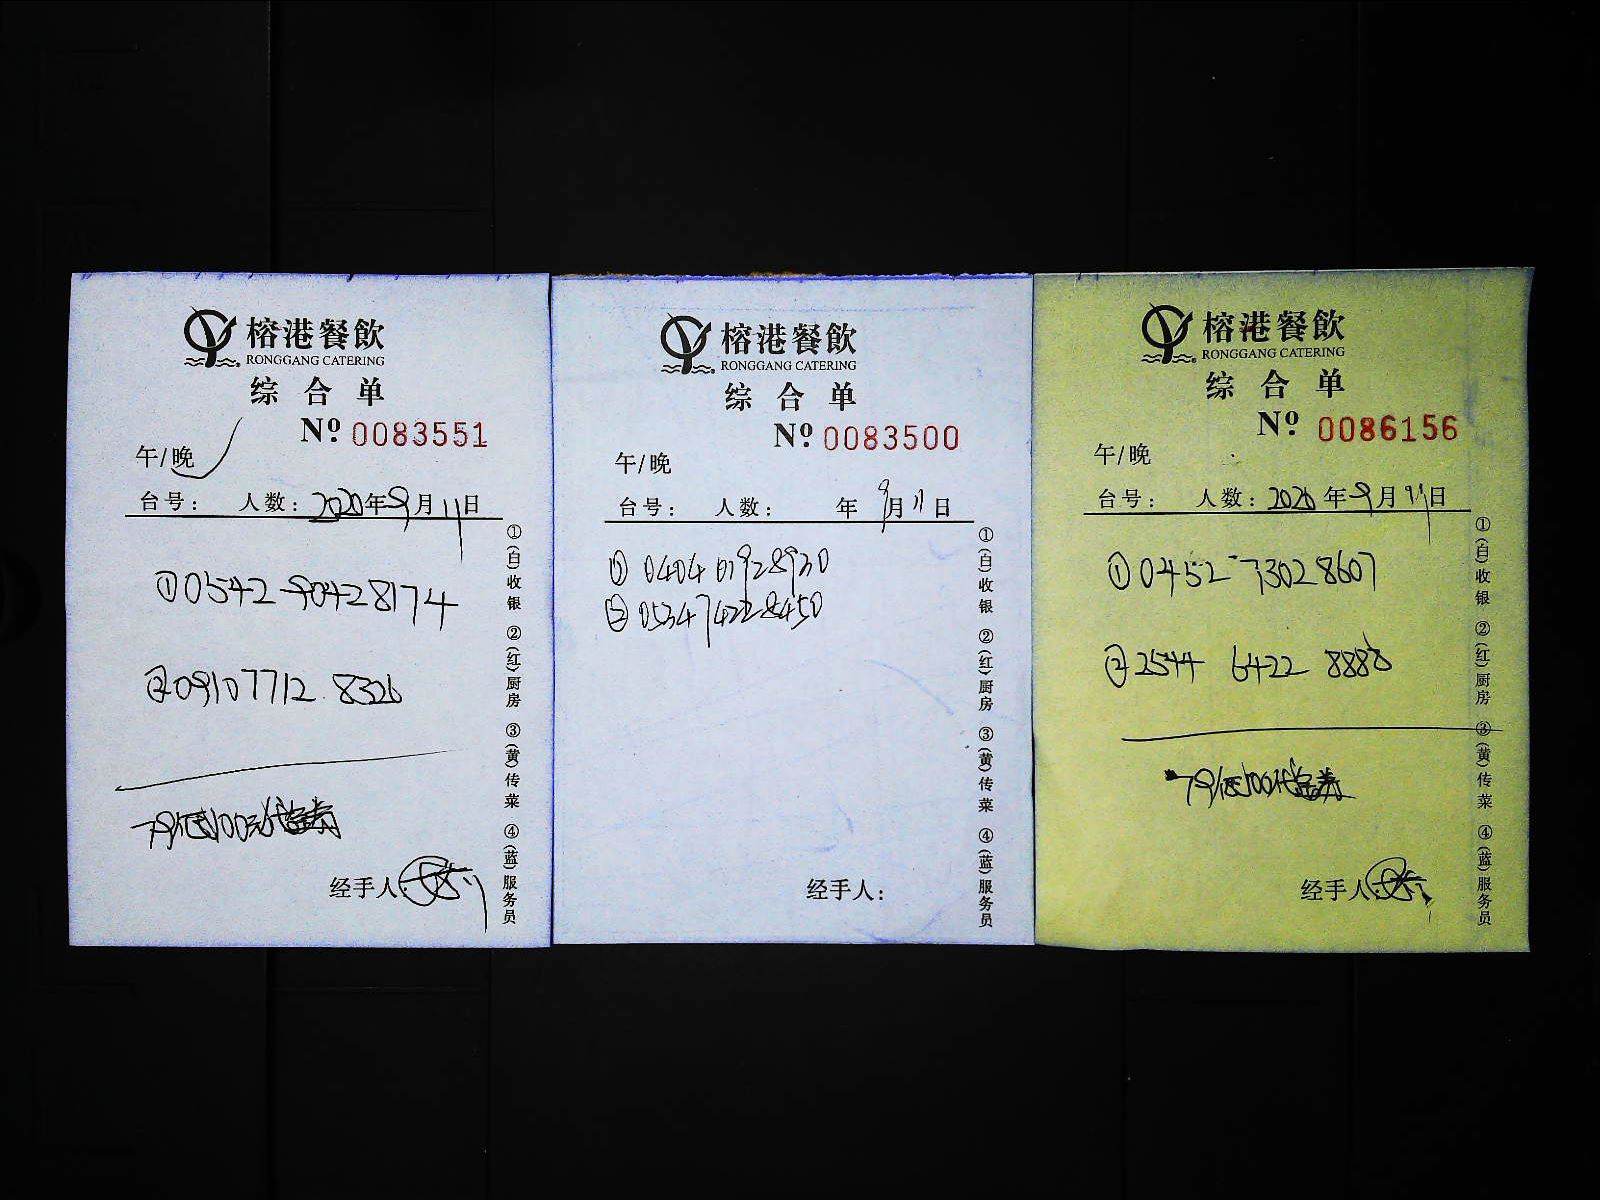 榕港餐飲
RONGGANG CATERING
综合单
Nº 0083551
午/晚
台号: 人数: 2020年9月11日
①0542 90428174
②09107712 8326
79抵100元代金券
经手人:
①(白)收银 ②(红)厨房 ③(黄)传菜 ④(蓝)服务员
榕港餐飲
RONGGANG CATERING
综合单
Nº 0083500
午/晚
台号: 人数: 年 9月11日
① 0404 01928930
② 053474228450
经手人:
①(白)收银 ②(红)厨房 ③(黄)传菜 ④(蓝)服务员
榕港餐飲
RONGGANG CATERING
综合单
Nº 0086156
午/晚
台号: 人数: 2020年9月11日
①0452 73028607
②2544 6422 8888
79抵100代金券
经手人:
①(白)收银 ②(红)厨房 ③(黄)传菜 ④(蓝)服务员